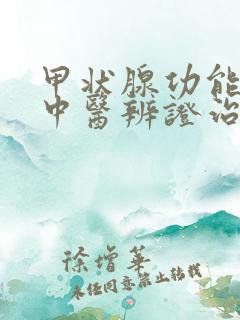 甲状腺功能
中醫辨證治
徐增華
未經同意禁止轉載